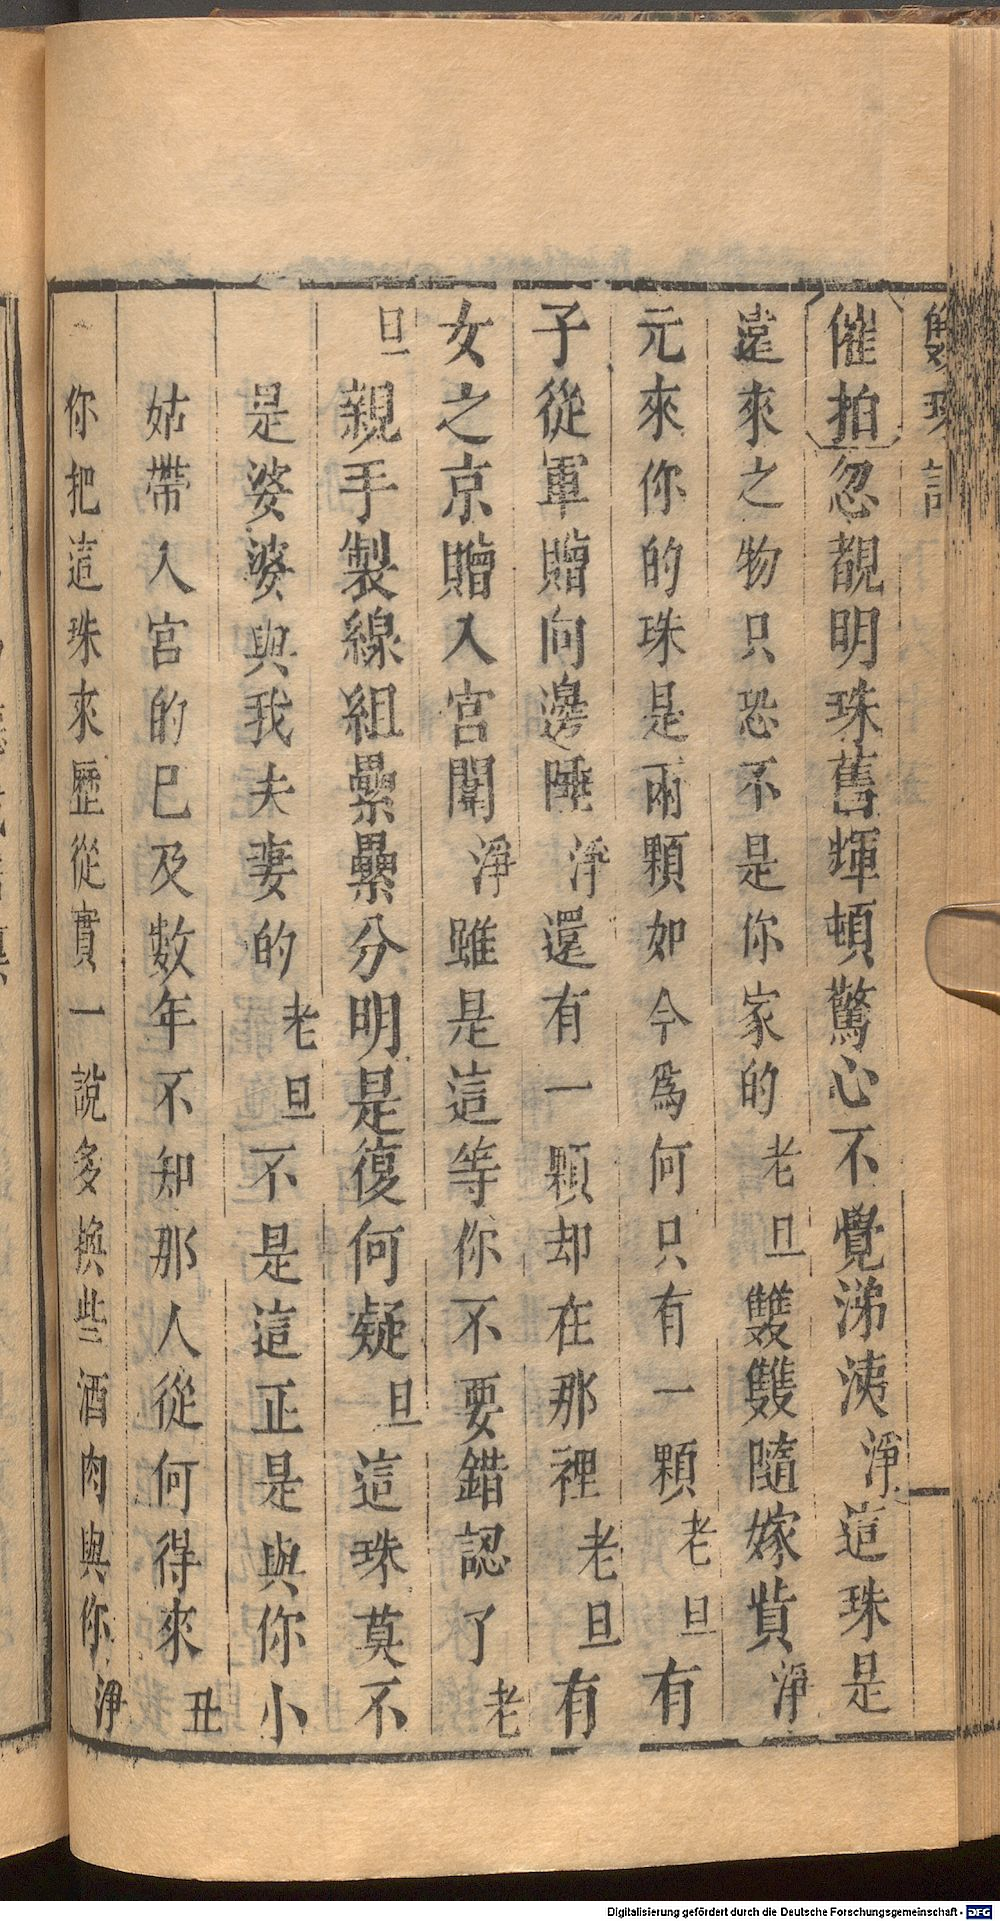 雙珠記
催拍忽覩明珠舊輝頓驚心不覺涕洟淨這珠是
遠來之物只恐不是你家的老旦雙雙隨嫁貲淨
元來你的珠是兩顆如今爲何只有一顆老旦有
子從軍贈向邊陲淨還有一顆却在那裡老旦有
女之京贈入宮闈淨雖是這等你不要錯認了老
旦親手製線組纍纍分明是復何疑旦這珠莫不
是婆婆與我夫妻的老旦不是這正是與你小
姑帶入宮的已及數年不知那人從何得來丑
你把這珠來歷從實一說多換些酒肉與你淨
Digitalisierung gefördert durch die Deutsche Forschungsgemeinschaft - DFG